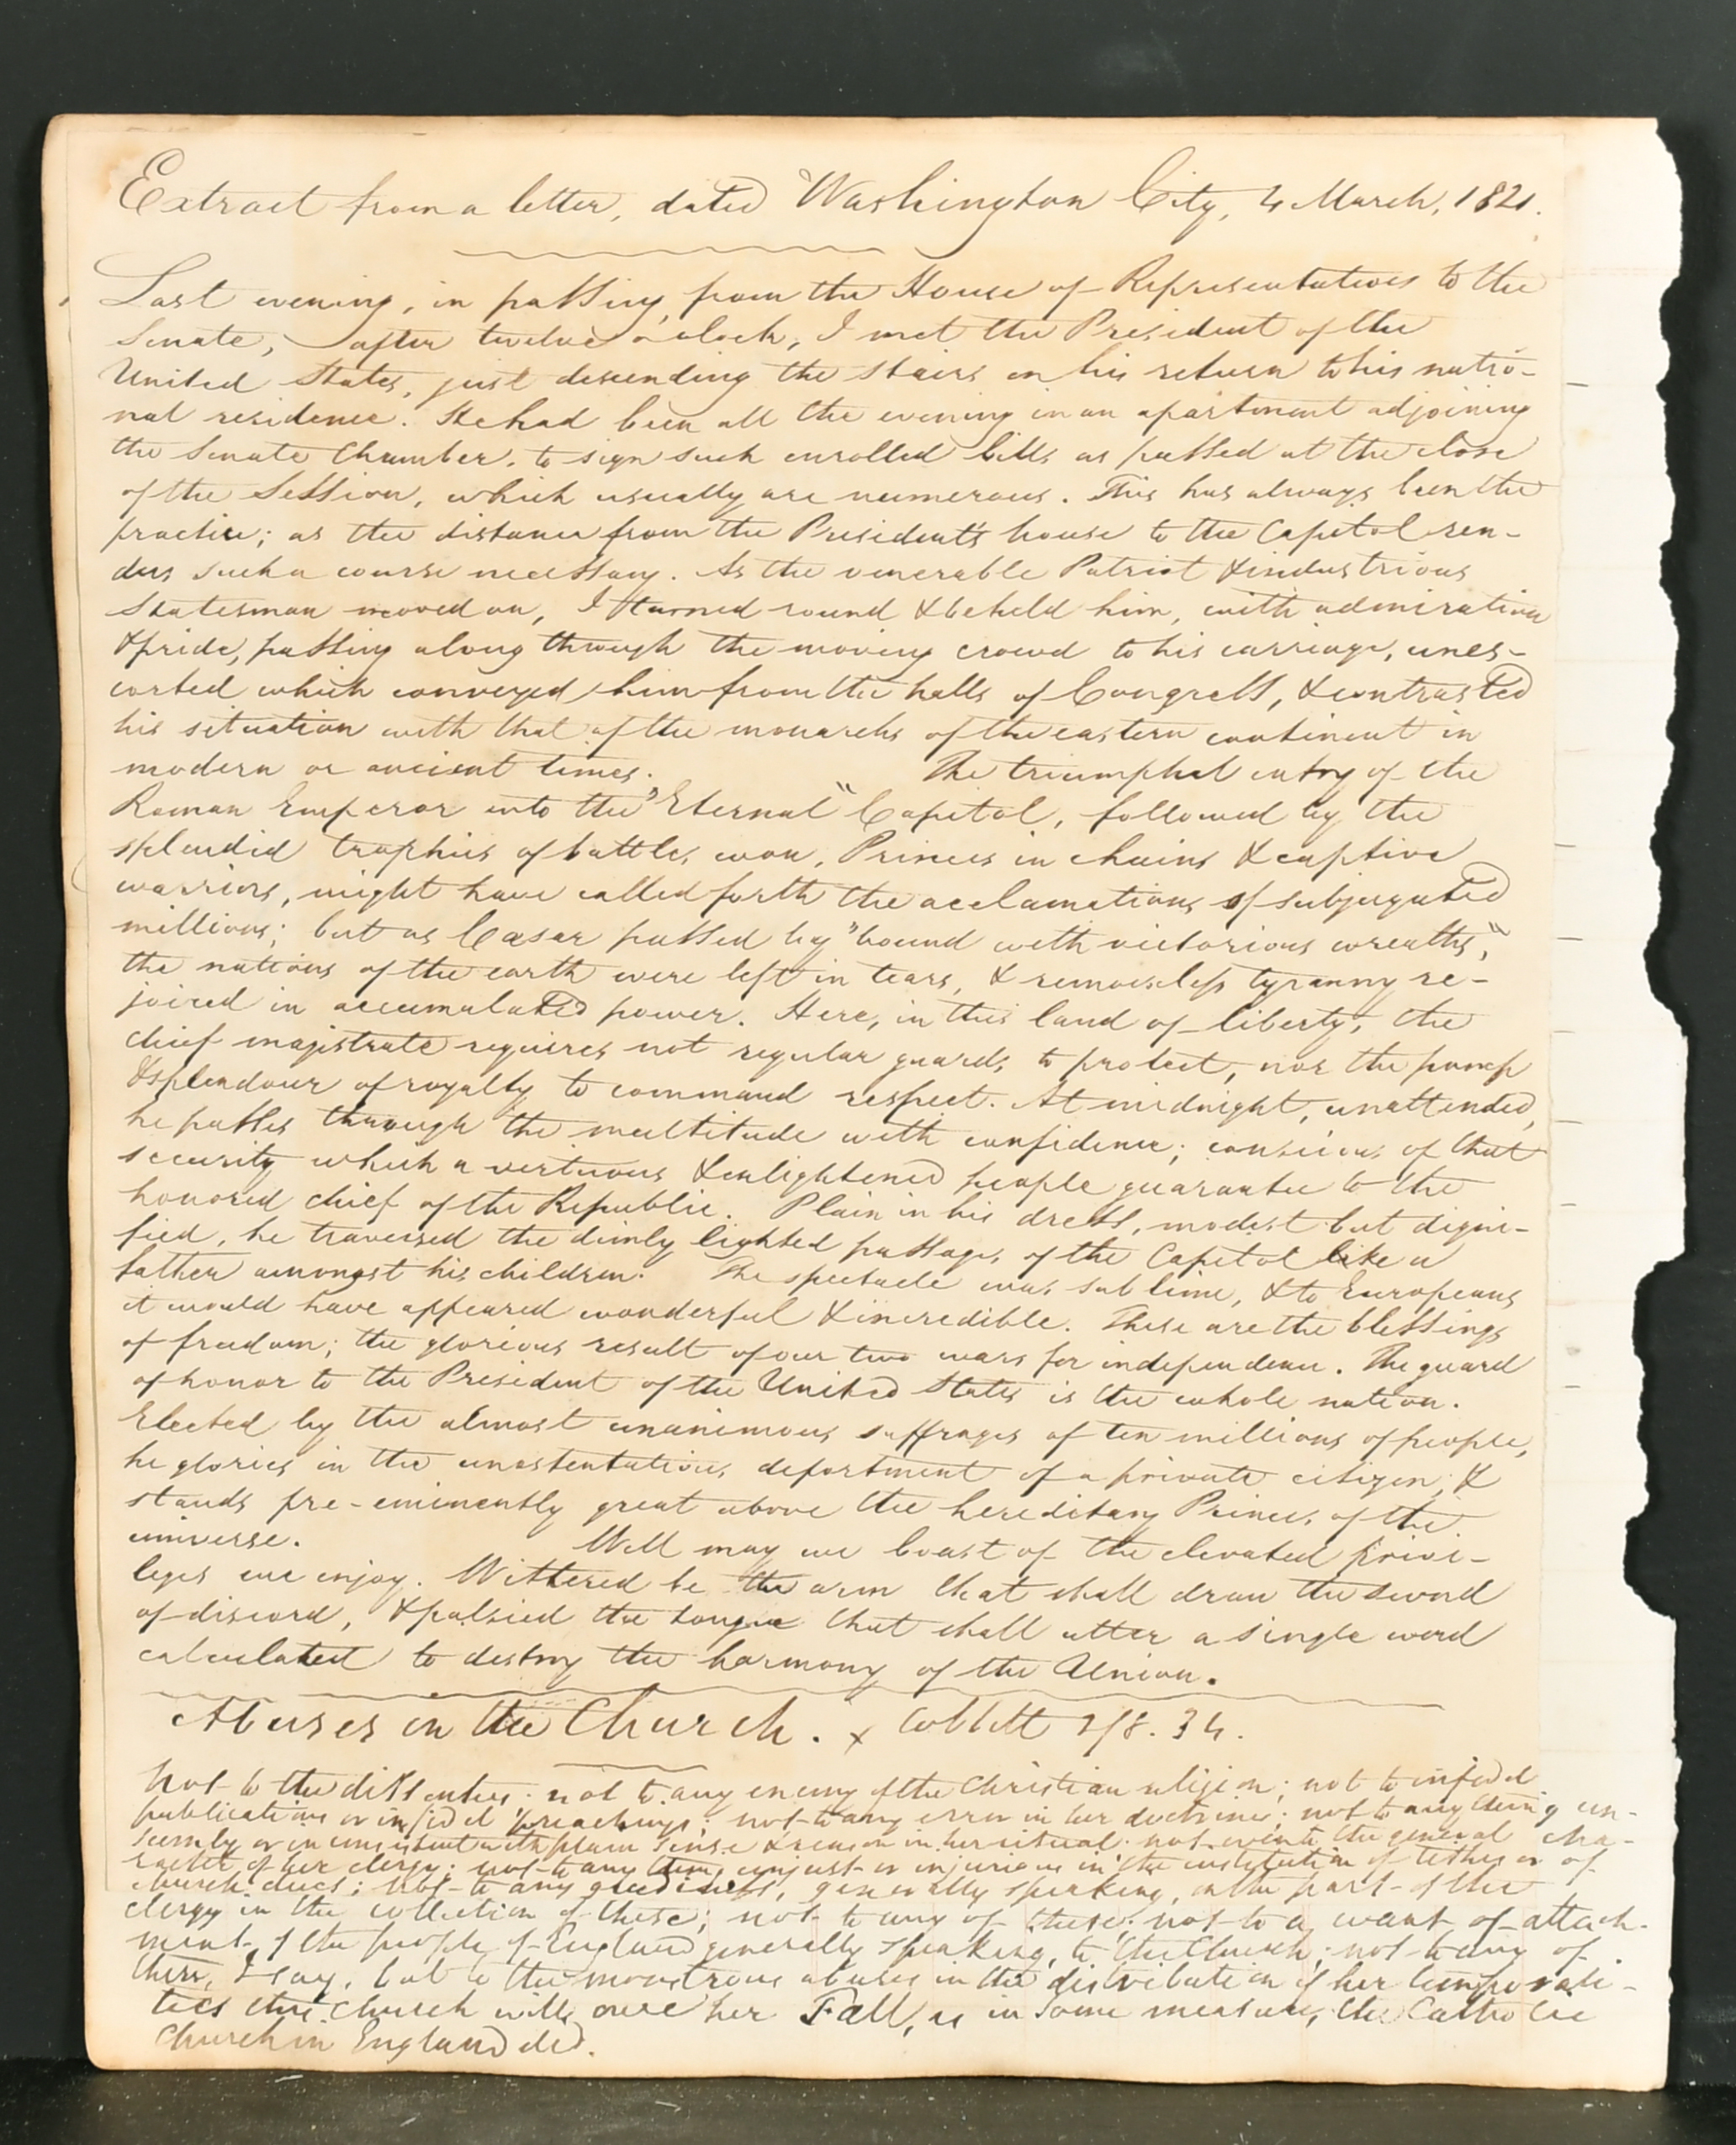 Extract from a letter, dated Washington City, 4 March, 1821.
Last evening, in passing from the House of Representatives to the
Senate, after twelve o'clock, I met the President of the
United States, just descending the stairs on his return to his natio-
nal residence. He had been all the evening in an apartment adjoining
the Senate Chamber, to sign such enrolled bills as passed at the close
of the Session, which usually are numerous. This has always been the
practice; as the distance from the President's house to the Capitol ren-
ders such a course necessary. As the venerable Patriot & industrious
Statesman moved on, I turned round & beheld him, with admiration
& pride, passing along through the moving crowd to his carriage, unes-
corted which conveyed him from the halls of Congress, & contrasted
his situation with that of the monarchs of the eastern continent in
modern or ancient times. The triumphal entry of the
Roman Emperor into the "Eternal" Capitol, followed by the
splendid trophies of battles won, Princes in chains & captive
warriors, might have called forth the acclamations of subjugated
millions; but as Cæsar passed by "bound with victorious wreaths,"
the nations of the earth were left in tears, & remorseless tyranny re-
joiced in accumulated power. Here, in this land of liberty, the
chief magistrate requires not regular guards to protect, nor the pomp
& splendour of royalty to command respect. At midnight, unattended,
he passes through the multitude with confidence; conscious of that
security which a vertuous & enlightened people guarantee to the
honored chief of the Republic. Plain in his dress, modest but digni-
fied, he traversed the dimly lighted passages of the Capitol like a
father amongst his children. The spectacle was sublime, & to Europeans
it would have appeared wonderful & incredible. These are the blessings
of freedom; the glorious result of our two wars for independence. The guard
of honor to the President of the United States is the whole nation.
Elected by the almost unanimous suffrages of ten millions of people,
he glories in the unostentatious deportment of a private citizen, &
stands pre-eminently great above the hereditary Princes of the
universe. Well may we boast of the elevated privi-
leges we enjoy. Withered be the arm that shall draw the sword
of discord, & palsied the tongue that shall utter a single word
calculated to destroy the harmony of the Union.
Abuses in the Church. x Cobbett 2/8. 34.
Not to the dissenters; not to any enemy of the Christian religion; not to infidel
publications or infidel preachings; not to any error in her doctrine; not to any thing un-
seemly or inconsistent with plain sense & reason in her ritual; not even to the general cha-
racter of her clergy; not to any thing unjust or injurious in the institution of tithes or of
church dues; not to any greediness, generally speaking, on the part of the
clergy in the collection of these; not to any of these; not to a want of attach-
ment of the people of England generally speaking, to the Church; not to any of
these, I say, but to the monstrous abuses in the distribution of her temporali-
ties the church will owe her Fall, as in some measure, the Catholic
Church in England did.